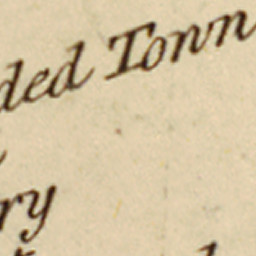 ded Town
ry